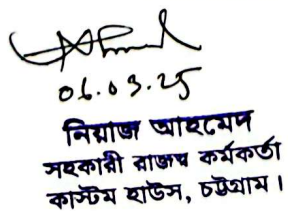 06.03.25
নিয়াজ আহমেদ
সহকারী রাজস্ব কর্মকর্তা
কাস্টম হাউস, চট্টগ্রাম।